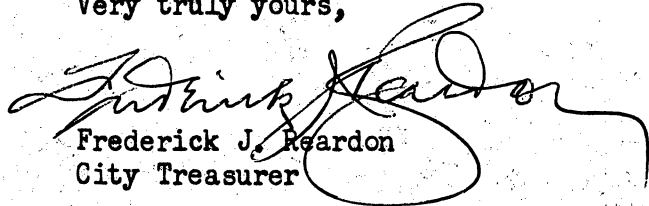 Very truly yours,
Frederick J Reardon
Frederick J. Reardon
City Treasurer